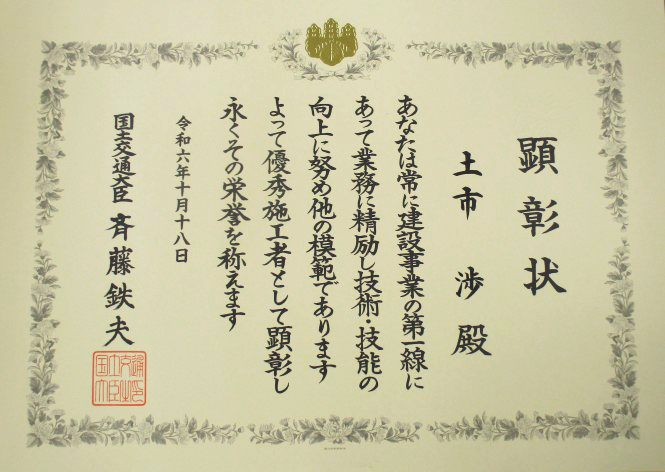 顕彰状
土市 渉 殿
あなたは常に建設事業の第一線に
あって業務に精励し技術・技能の
向上に努め他の模範であります
よって優秀施工者として顕彰し
永くその栄誉を称えます
令和六年十月十八日
国土交通大臣 斉藤鉄夫